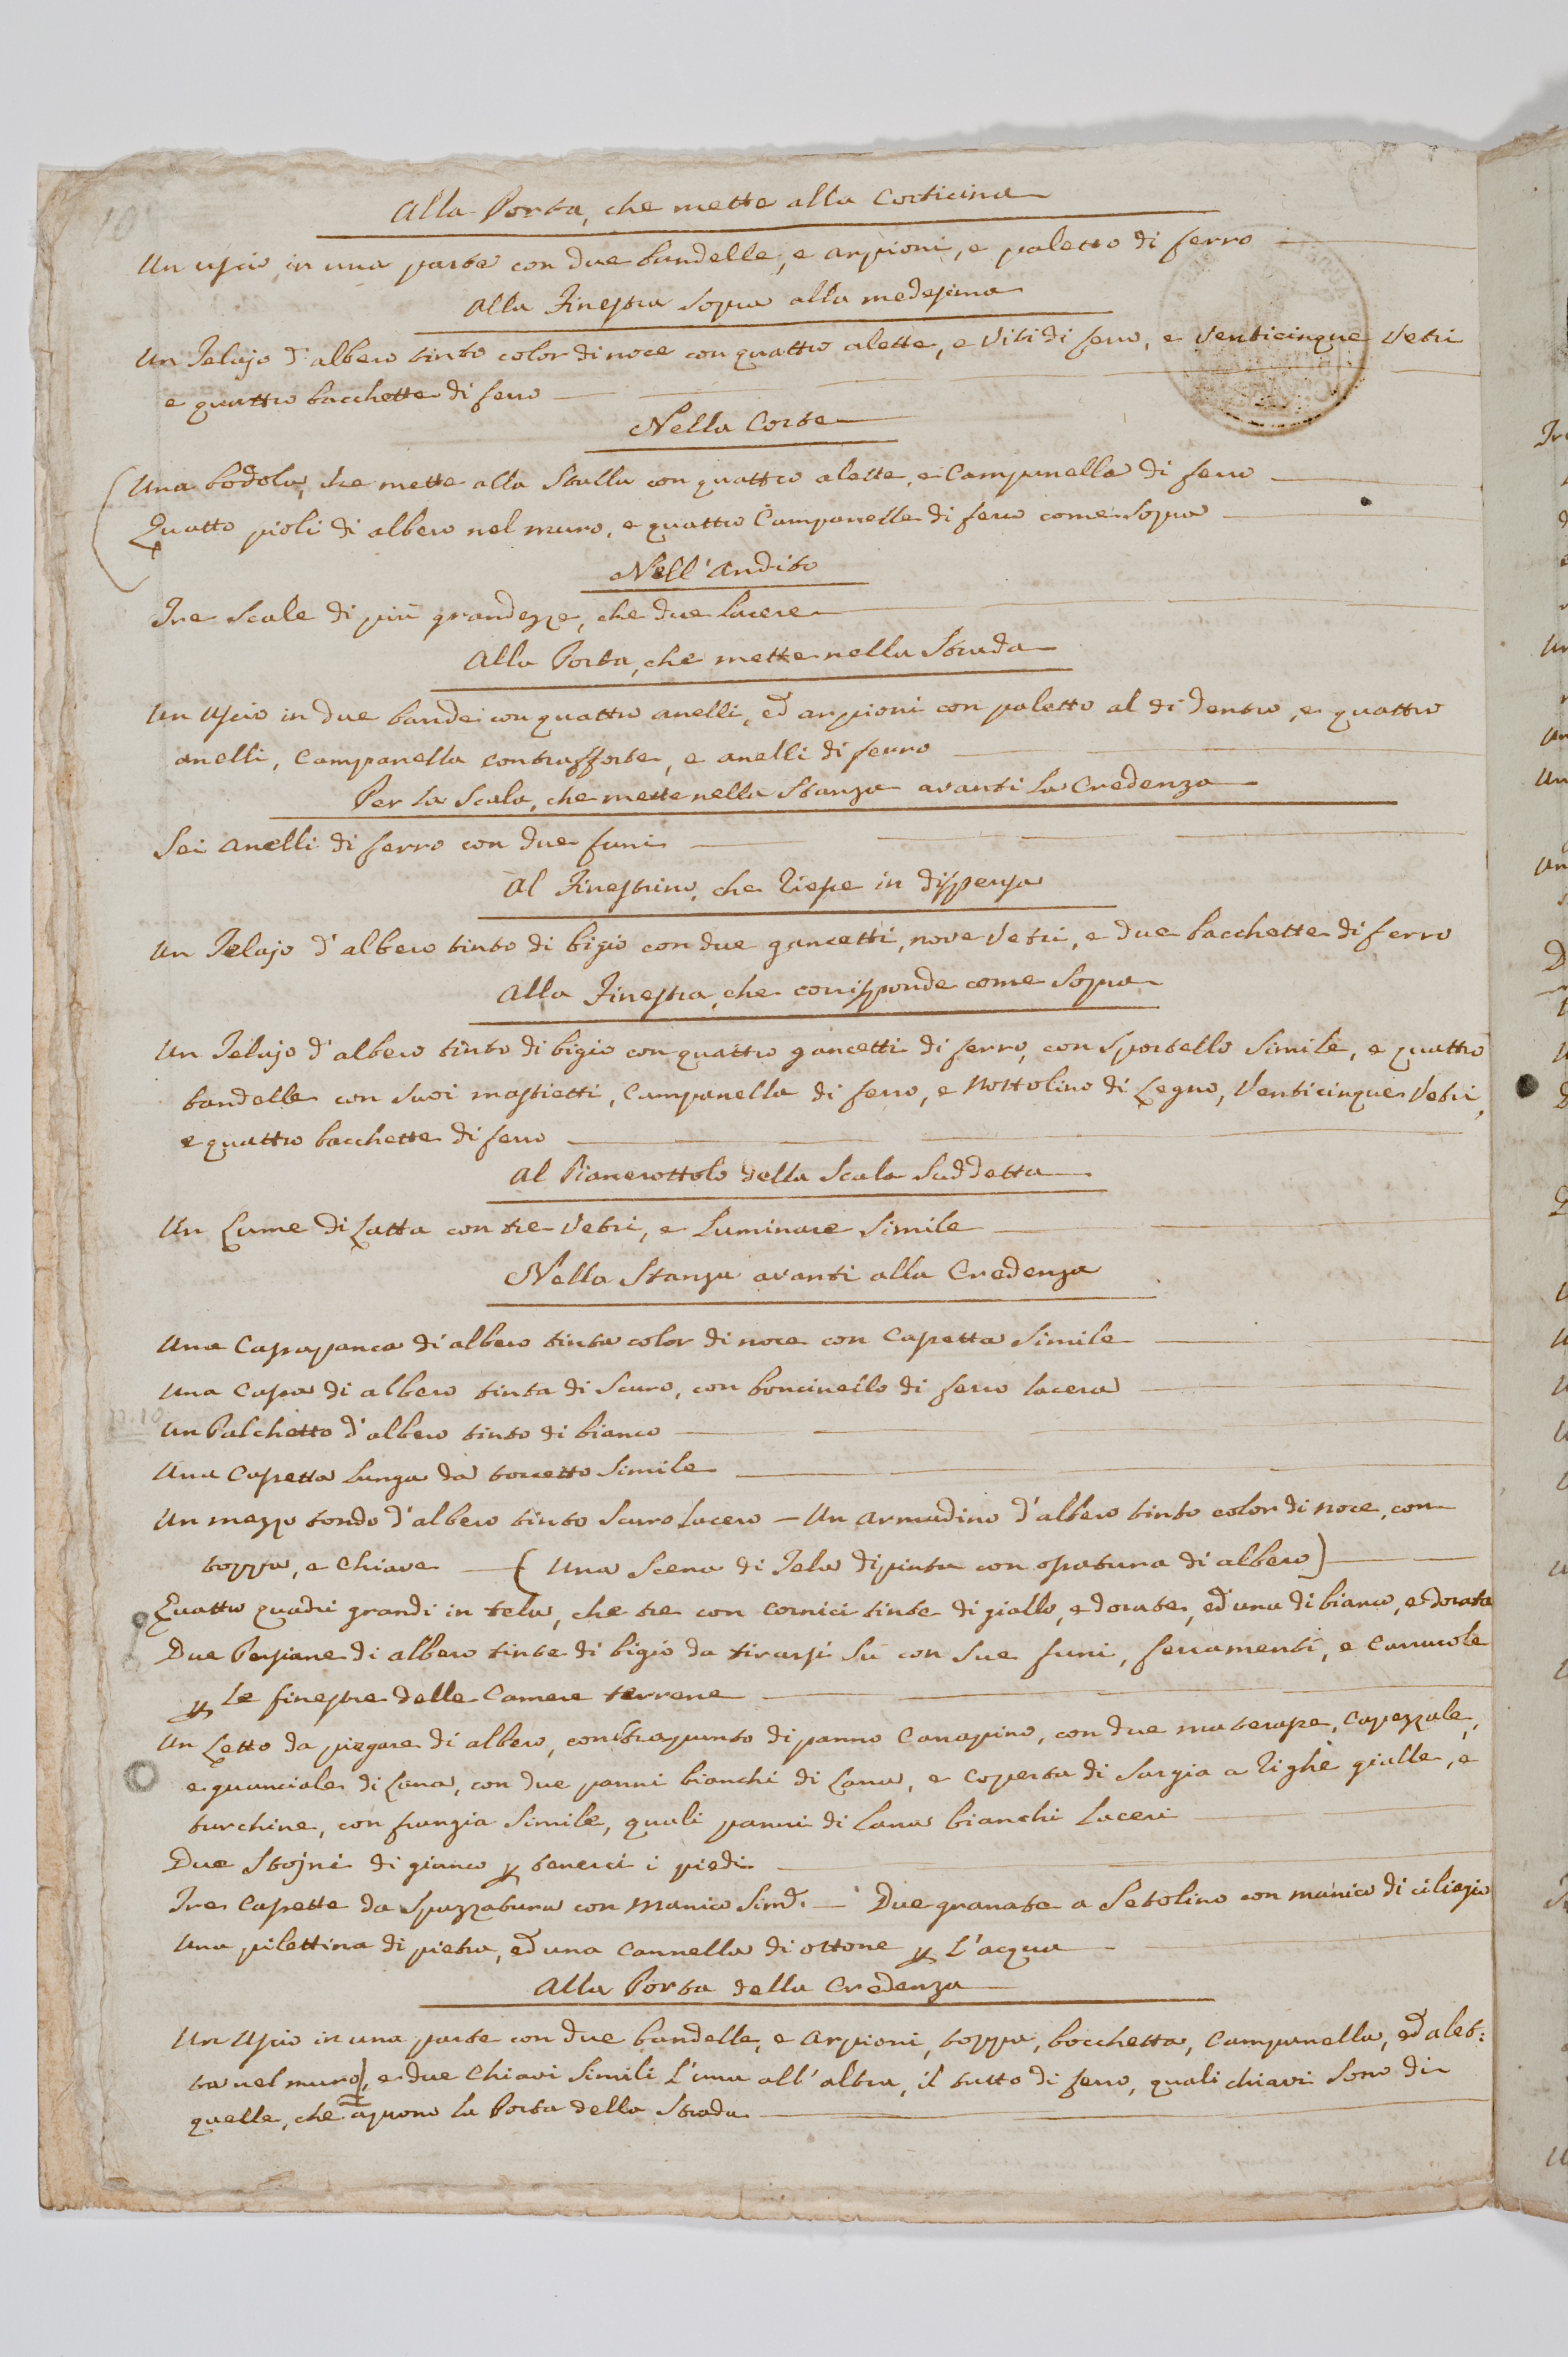 10
Alla Porta, che mette alla Corticina
Un uscio in una parte con due bandelle, e arpioni, e paletto di ferro
Alla Finestra sopra alla medesima
Un Telajo d'albero tinto color di noce con quattro alette, e viti di ferro, e venticinque vetri
e quattro bacchette di ferro
Nella Corte
Una bodola, che mette alla Stalla con quattro alette, e Campanella di ferro
Quatto pioli di albero nel muro, e quattro Campanelle di ferro come sopra
Nell'Andito
Tre Scale di più grandezze, che due lacere
Alla Porta, che mette nella Strada
Un Uscio in due bande con quattro anelli, ed arpioni con paletto al di dentro, e quattro
anelli, Campanella contrafforte, e anelli di ferro
Per la Scala, che mette nella Stanza avanti la Credenza
Sei anelli di ferro con due funi
Al Finestrino, che riesce in dispensa
Un Telajo d'albero tinto di bigio con due gancetti, nove vetri, e due bacchette di ferro
Alla Finestra, che corrisponde come sopra
Un Telajo d'albero tinto di bigio con quattro gancetti di ferro, con sportello simile, e quattro
bandelle con suoi mastietti, Campanella di ferro, e nottolino di Legno, Venticinque Vetri,
e quattro bacchette di ferro
Al Pianerottolo della Scala Suddetta
Un Lume di Latta con tre Vetri, e Luminare simile
Nella Stanza avanti alla Credenza
Una Cassapanca di albero tinta color di noce con Cassetta simile
Una Cassa di albero tinta di scuro, con boncinello di ferro lacera
Un Palchetto d'albero tinto di bianco
Una Cassetta lunga da torcetto simile
Un mezzo tondo d'albero tinto scuro lacero — Un armadino d'albero tinto color di noce, con
toppa, e chiave — (Una Scena di Tela dipinta con ossatura di albero)
Quattro quadri grandi in tela, che tre con cornici tinte di giallo, e dorate, ed una di bianco, e dorata
Due Persiane di albero tinte di bigio da tirarsi su con sue funi, ferramenti, e Carrucole
p le finestre delle Camere terrene
Un Letto da piegare di albero, con strapunto di panno Canapino, con due materasse, Capezzale,
e guanciale di Lana, con due panni bianchi di Lana, e coperta di Sargia a righe gialle, e
turchine, con frangia simile, quali panni di lana bianchi laceri
Due Stojni di giunco p tenerci i piedi
Tre Cassette da Spazzatura con manico simile — Due granate a Setolino con manico di ciliegio
Una pilettina di pietra, ed una Cannella di ottone p l'acqua
Alla Porta della Credenza
Un Uscio in una parte con due bandelle, e arpioni, toppa, bocchetta, Campanella, ed alet:
ta nel muro, e due Chiavi simili l'una all'altra, il tutto di ferro, quali chiavi sono di
quelle, che aprono la Porta della Strada